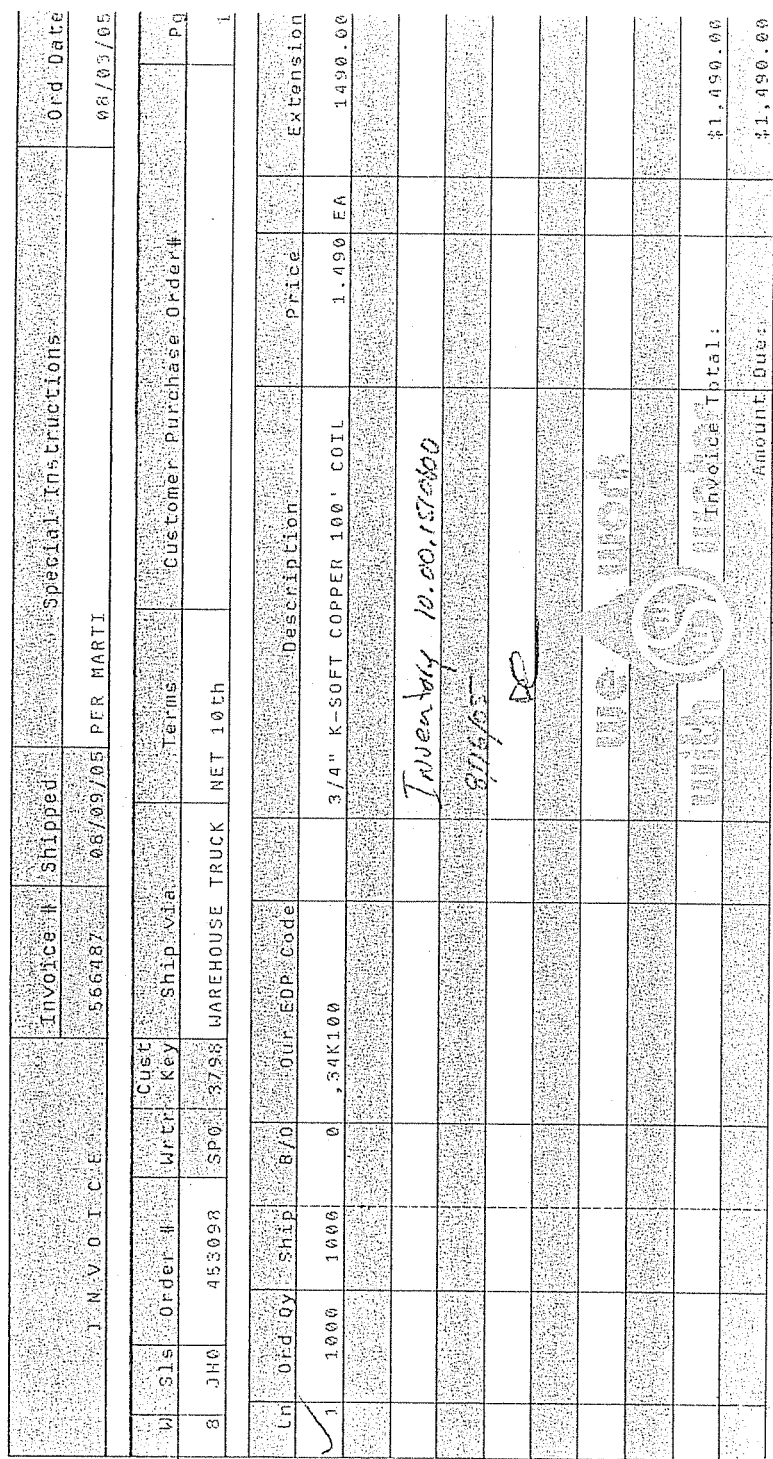 I N V O I C E Invoice # Shipped Special Instructions Ord Date
566487 08/09/05 PER MARTI 08/03/05
W Sls Order # Wrtr Cust Key Ship Via Terms Customer Purchase Order# Pg
8 JH0 453098 SP0 3798 WAREHOUSE TRUCK NET 10th 1
Ln Ord Qy Ship B/O Our EDP Code Description Price Extension
1 1000 1000 0 ,34K100 3/4" K-SOFT COPPER 100' COIL 1.490 EA 1490.00
Inventory
we work
with water
Invoice Total: $1,490.00
Amount Due: $1,490.00